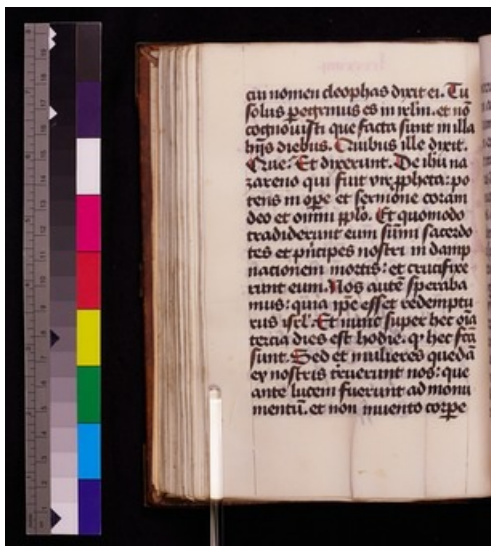 cui nomen cleophas dixit ei. Tu
solus pegrinus es in irlm. et nō
cognouisti que facta sunt in illa
hijs diebus. Quibus ille dixit.
Que. Et dixerunt. De ihu na
zareno qui fuit vir ppheta: po
tens in ope et sermone coram
deo et omni pplo. Et quomodo
tradiderunt eum sūmi sacerdo
tes et pncipes nostri in damp
nationem mortis: et crucifixe
runt eum. Nos autē speraba
mus: quia ipe esset redemptu
rus isrl. Et nunc super hec oīa
tercia dies est hodie. q hec fcā
sunt. Sed et mulieres quedā
ex nostris trruerunt nos: que
ante lucem fuerunt ad monu
mentū. et non inuento corpe